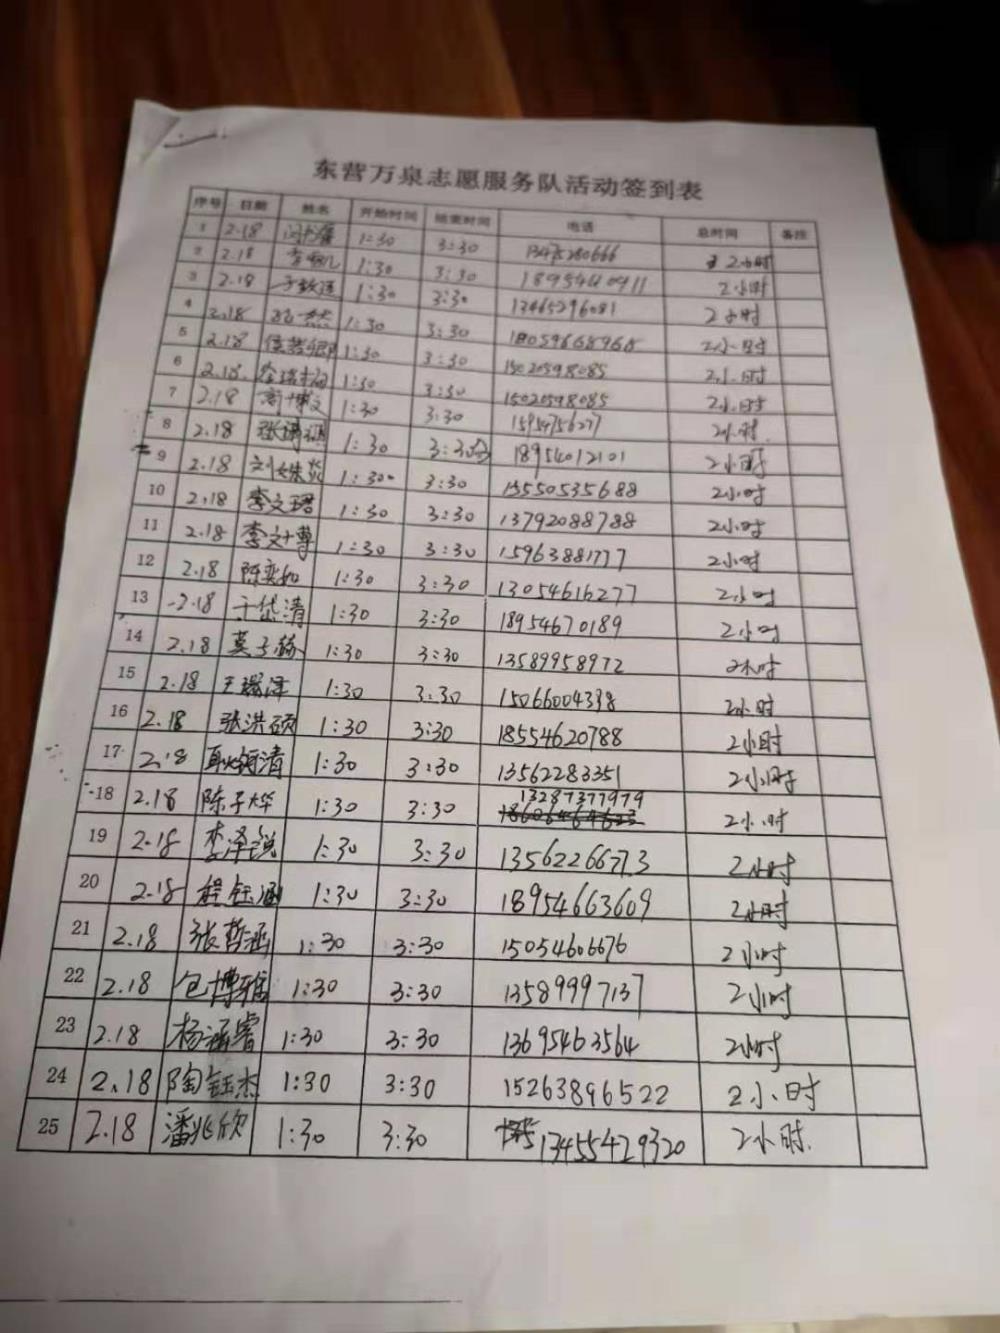 东营万泉志愿服务队活动签到表
序号 日期 姓名 开始时间 结束时间 电话 总时间 备注
1 2.18 1:30 3:30 13475280666 2小时
2 2.18 1:30 3:30 18954640911 2小时
3 2.18 1:30 3:30 13465296081 2小时
4 2.18 然 1:30 3:30 18059668968 2小时
5 2.18 1:30 3:30 15020598085 2小时
6 2.18. 1:30 3:30 15020598085 2小时
7 2.18 高博文 1:30 3:30 15954756277 2小时.
8 2.18 张 1:30 3:30 18954012101 2小时
9 2.18 刘姝炎 1:30 3:30 13505535688 2小时
10 2.18 李文珺 1:30 3:30 13792088788 2小时
11 2.18 李文博 1:30 3:30 15963881777 2小时
12 2.18 陈奕如 1:30 3:30 13054616277 2小时
13 2.18 于岱清 1:30 3:30 18954670189 2小时
14 2.18 莫子赫 1:30 3:30 13589958972 2小时
15 2.18 王 泽 1:30 3:30 15066004338 2小时
16 2.18 张洪硕 1:30 3:30 18554620788 2小时
17 2.18 清 1:30 3:30 13562283351 2小时
18 2.18 陈子烨 1:30 3:30 13287377979 2小时
19 2.18 李泽锐 1:30 3:30 13562266713 2小时
20 2.18 程钰涵 1:30 3:30 18954663609 2小时
21 2.18 张哲涵 1:30 3:30 15054606676 2小时
22 2.18 包博雅 1:30 3:30 13589997137 2小时
23 2.18 杨涵睿 1:30 3:30 13695463564 2小时
24 2.18 陶钰杰 1:30 3:30 15263896522 2小时
25 2.18 潘兆欣 1:30 3:30 13455429320 2小时.